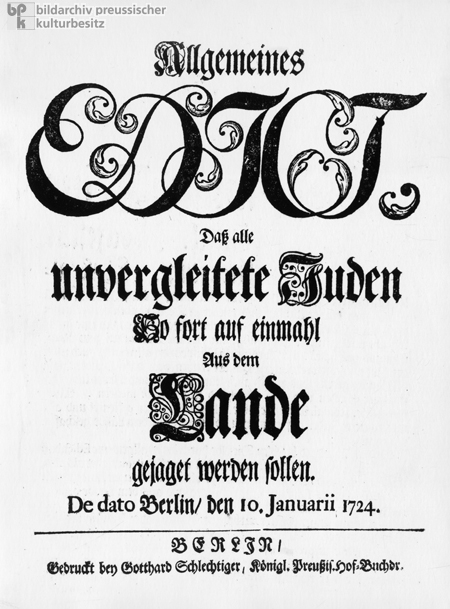 bpk bildarchiv preussischer
kulturbesitz
Allgemeines
EDICT.
Daß alle
unvergleitete Juden
So fort auf einmahl
Aus dem
Lande
gejaget werden sollen.
De dato Berlin/ den 10. Januarii 1724.
BERLIN/
Gedruckt bey Gotthard Schlechtiger, Königl. Preußis. Hof-Buchdr.